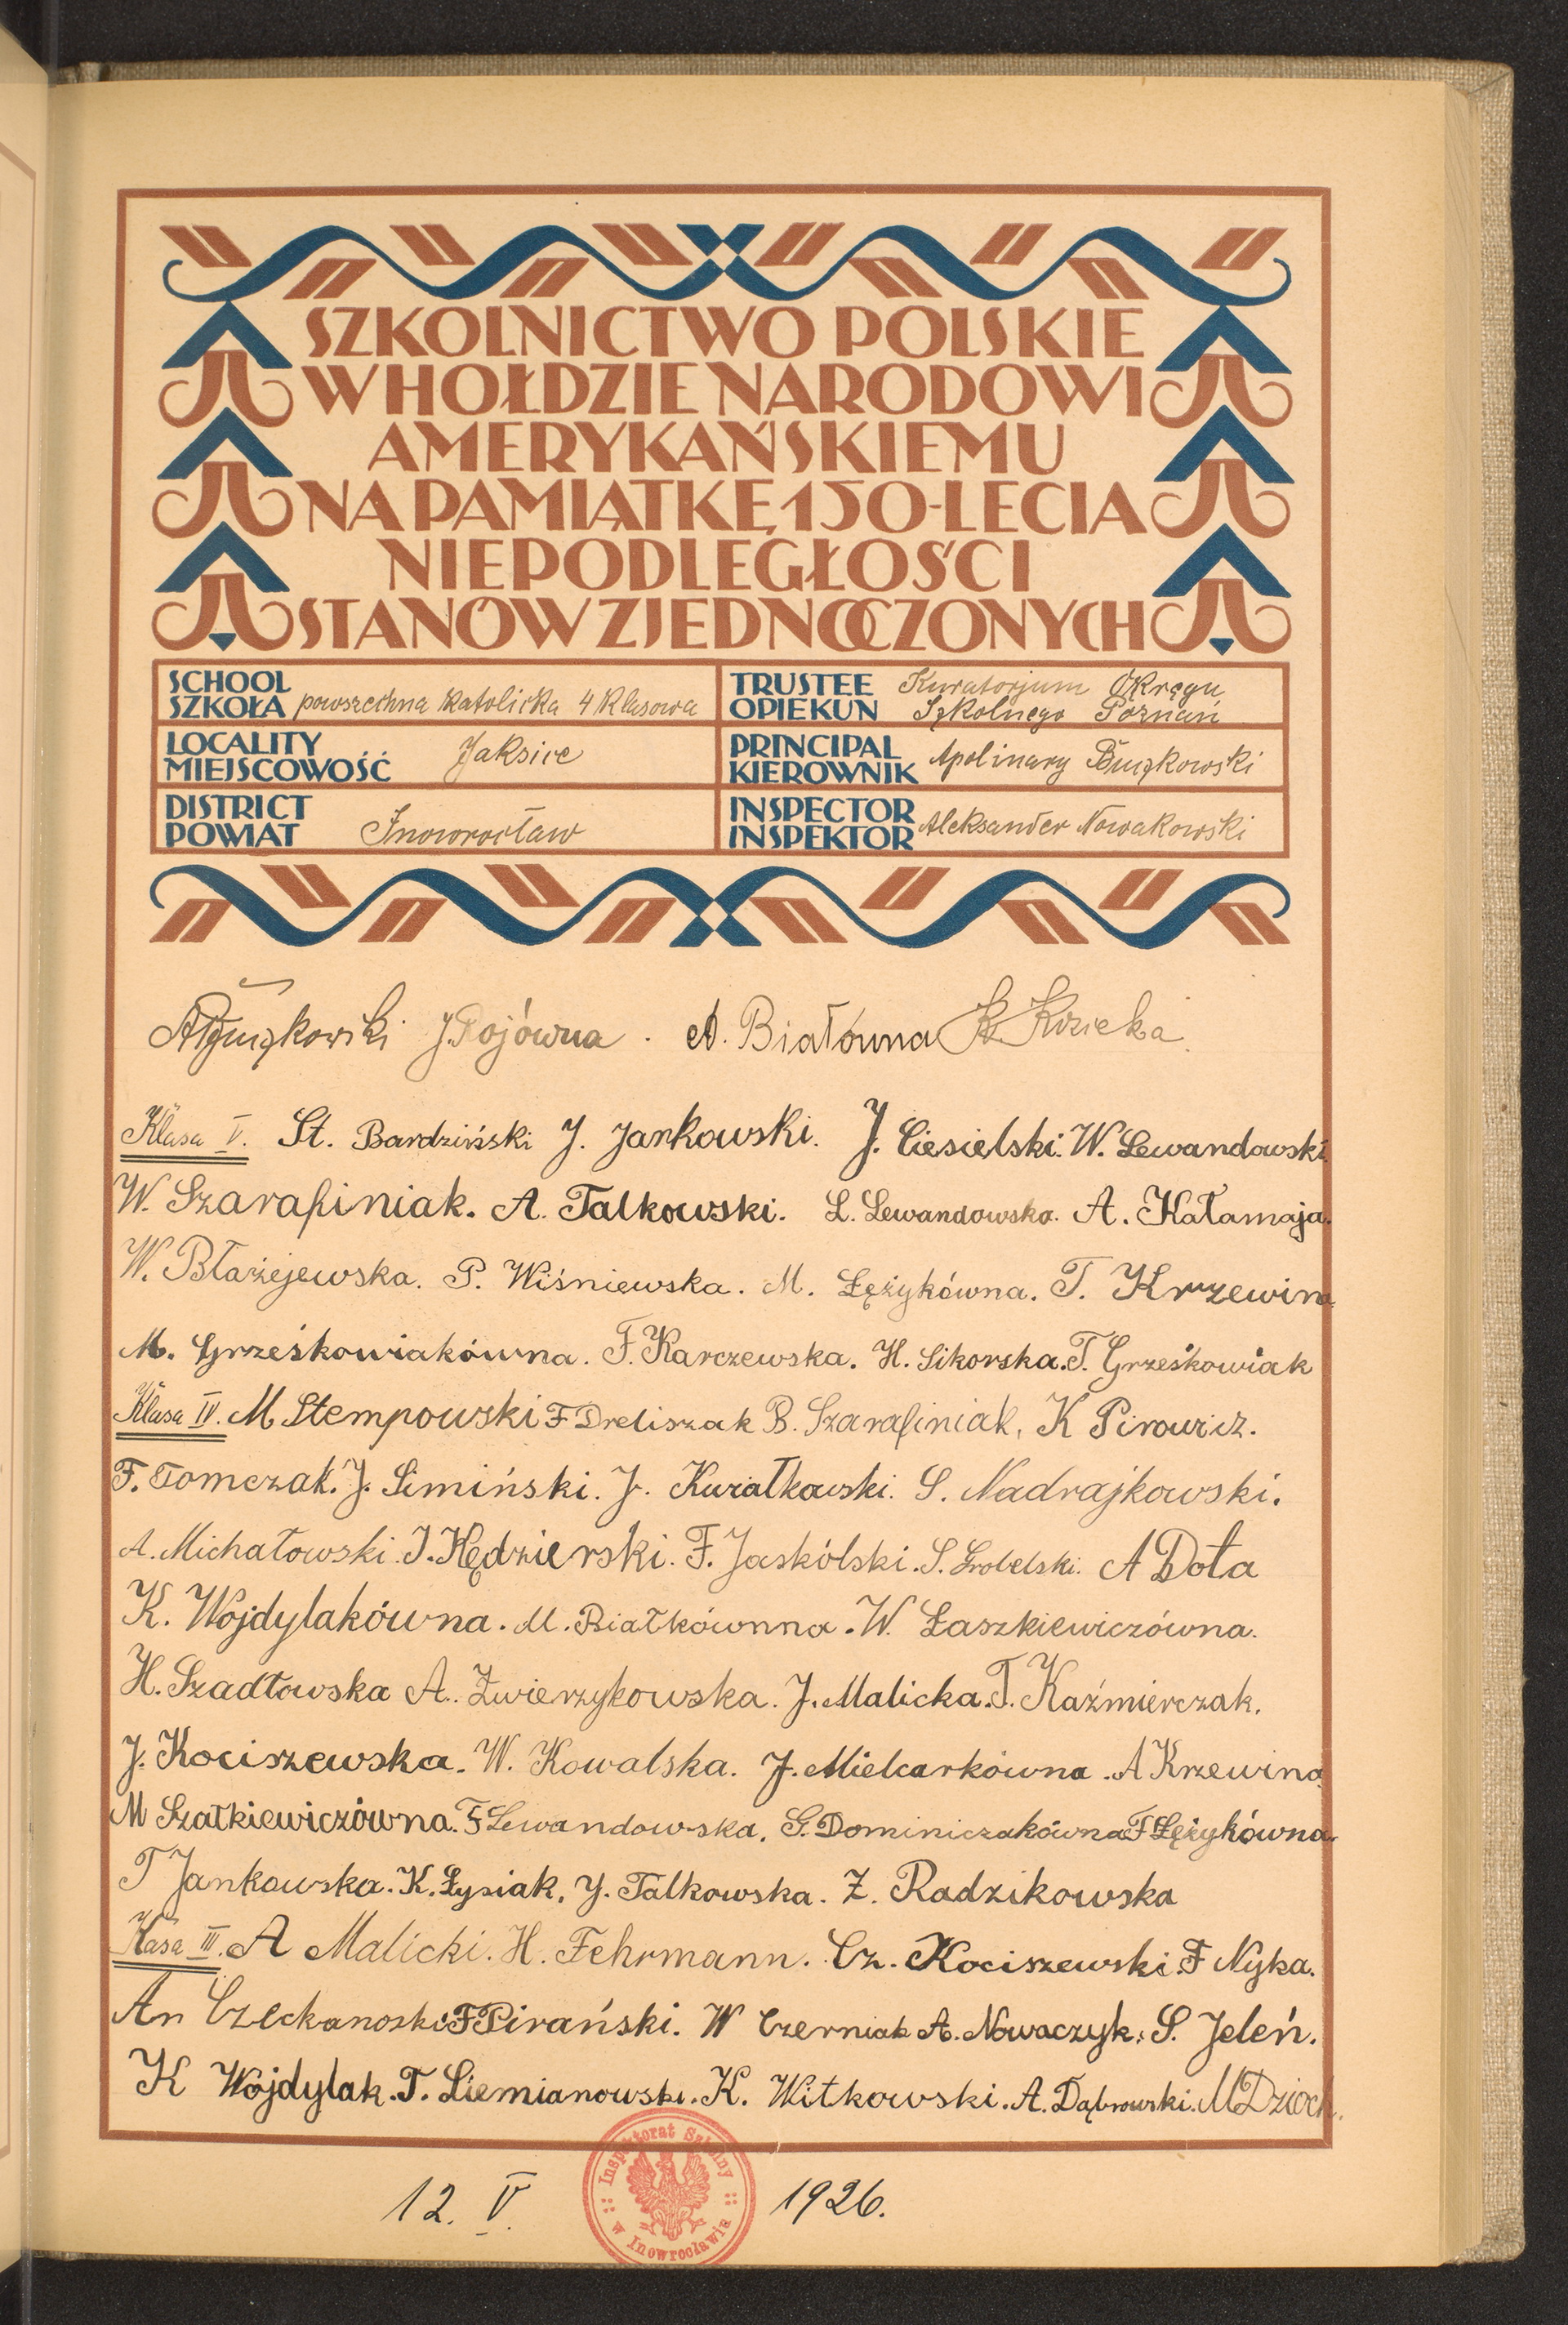 SZKOLNICTWO POLSKIE
W HOŁDZIE NARODOWI
AMERYKAŃSKIEMU
NA PAMIĄTKĘ 150-LECIA
NIEPODLEGŁOŚCI
STANÓW ZJEDNOCZONYCH
SCHOOL
SZKOŁA powszechna katolicka 4 klasowa
TRUSTEE Kuratorjum Okręgu
OPIEKUN Szkolnego Poznań
LOCALITY
MIEJSCOWOŚĆ Jaksice
PRINCIPAL
KIEROWNIK Apolinary
DISTRICT
POWIAT Inowrocław
INSPECTOR
INSPEKTOR Aleksander Nowakowski
J. Rojówna. A. Białówna K. Kozicka
Klasa V. St. Bardziński J. Jankowski. J. Ciesielski. W. Lewandowski.
W. Szarafiniak. A. Talkowski. L. Lewandowska. A. Kałamaja.
W. Błażejewska. P. Wiśniewska. M. Łężykówna. T. Krzewina
M. Grześkowiakówna. F. Karczewska. H. Sikorska. T. Grześkowiak
Klasa IV. M Stempowski F Dreliszak B. Szarafiniak, K Pirowicz.
F. Tomczak. J. Simiński. J. Kwiatkowski. S. Nadrajkowski.
A. Michałowski. J. Kędzierski. F. Jaskólski. S. Grobelski. A Dota
K. Wojdylakówna. M. Białkównna. W. Łaszkiewiczówna.
H. Szadłowska A. Zwierzykowska. J. Malicka. T. Kaźmierczak.
J. Kociszewska. W. Kowalska. J. Mielcarkówna. A Krzewina
M Szatkiewiczówna. F Lewandowska. G. Dominiczakówna F Łężykówna.
T Jankowska. K. Łysiak. J. Talkowska. Z. Radzikowska
Klasa III. A Malicki. H. Fehrmann. Cz. Kociszewski. F Nyka.
An Czeckanoski F Pirański. W Czerniak A. Nowaczyk. S. Jeleń.
K Wojdylak. T. Siemianowski. K. Witkowski. A. Dąbrowski. M Dzioch.
Inspektorat Szkolny
w Inowrocławiu
12. V. 1926.